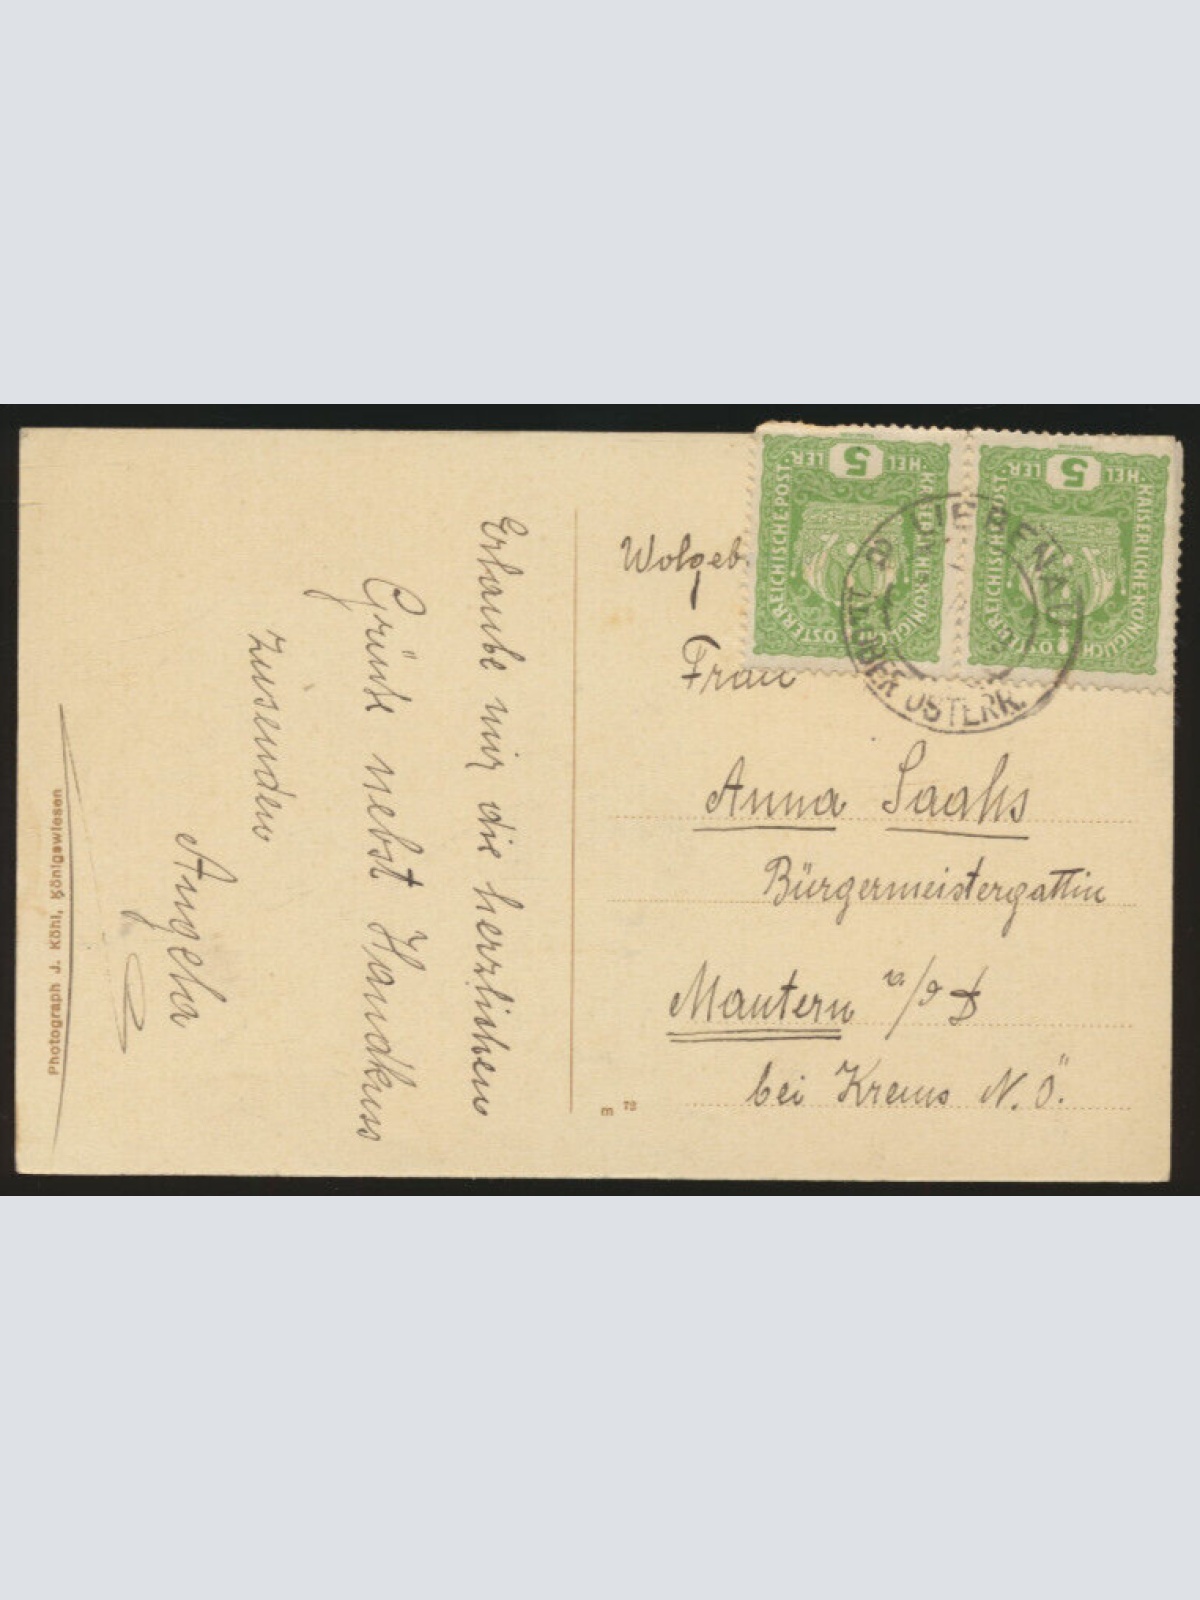 Erlaube mir die herzlichen
Grüße nebst Handkuss
zusenden
Angela
Photograph J. Köhl, Königswiesen
m 78
Wolgeb.
Frau
Anna Saahs
Bürgermeistergattin
Mautern a/d D
bei Krems N. Ö.
5
HEL LER
KAISERLICHE KÖNIGLICHE ÖSTERREICHISCHE POST.
5
HEL LER
KAISERLICHE KÖNIGLICHE ÖSTERREICHISCHE POST.
LIEBENAU
OBER ÖSTERR.